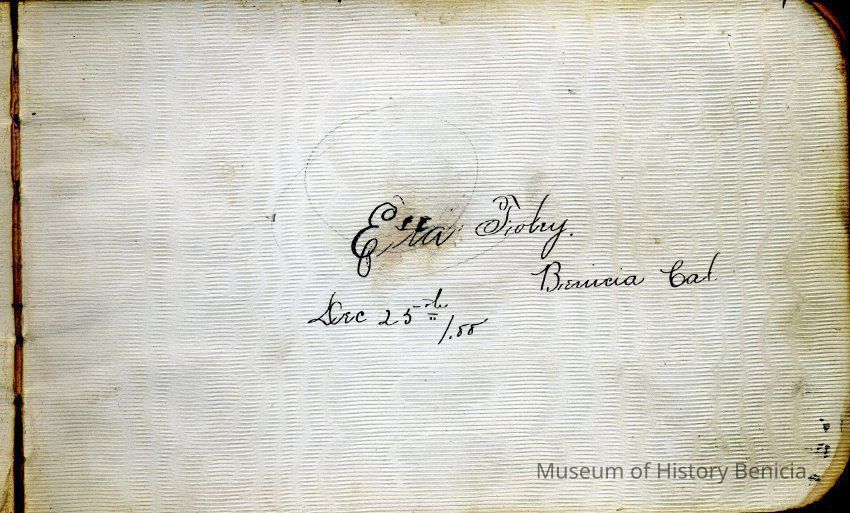 Etta
Benicia Cal.
Dec 25th
Museum of History Benicia